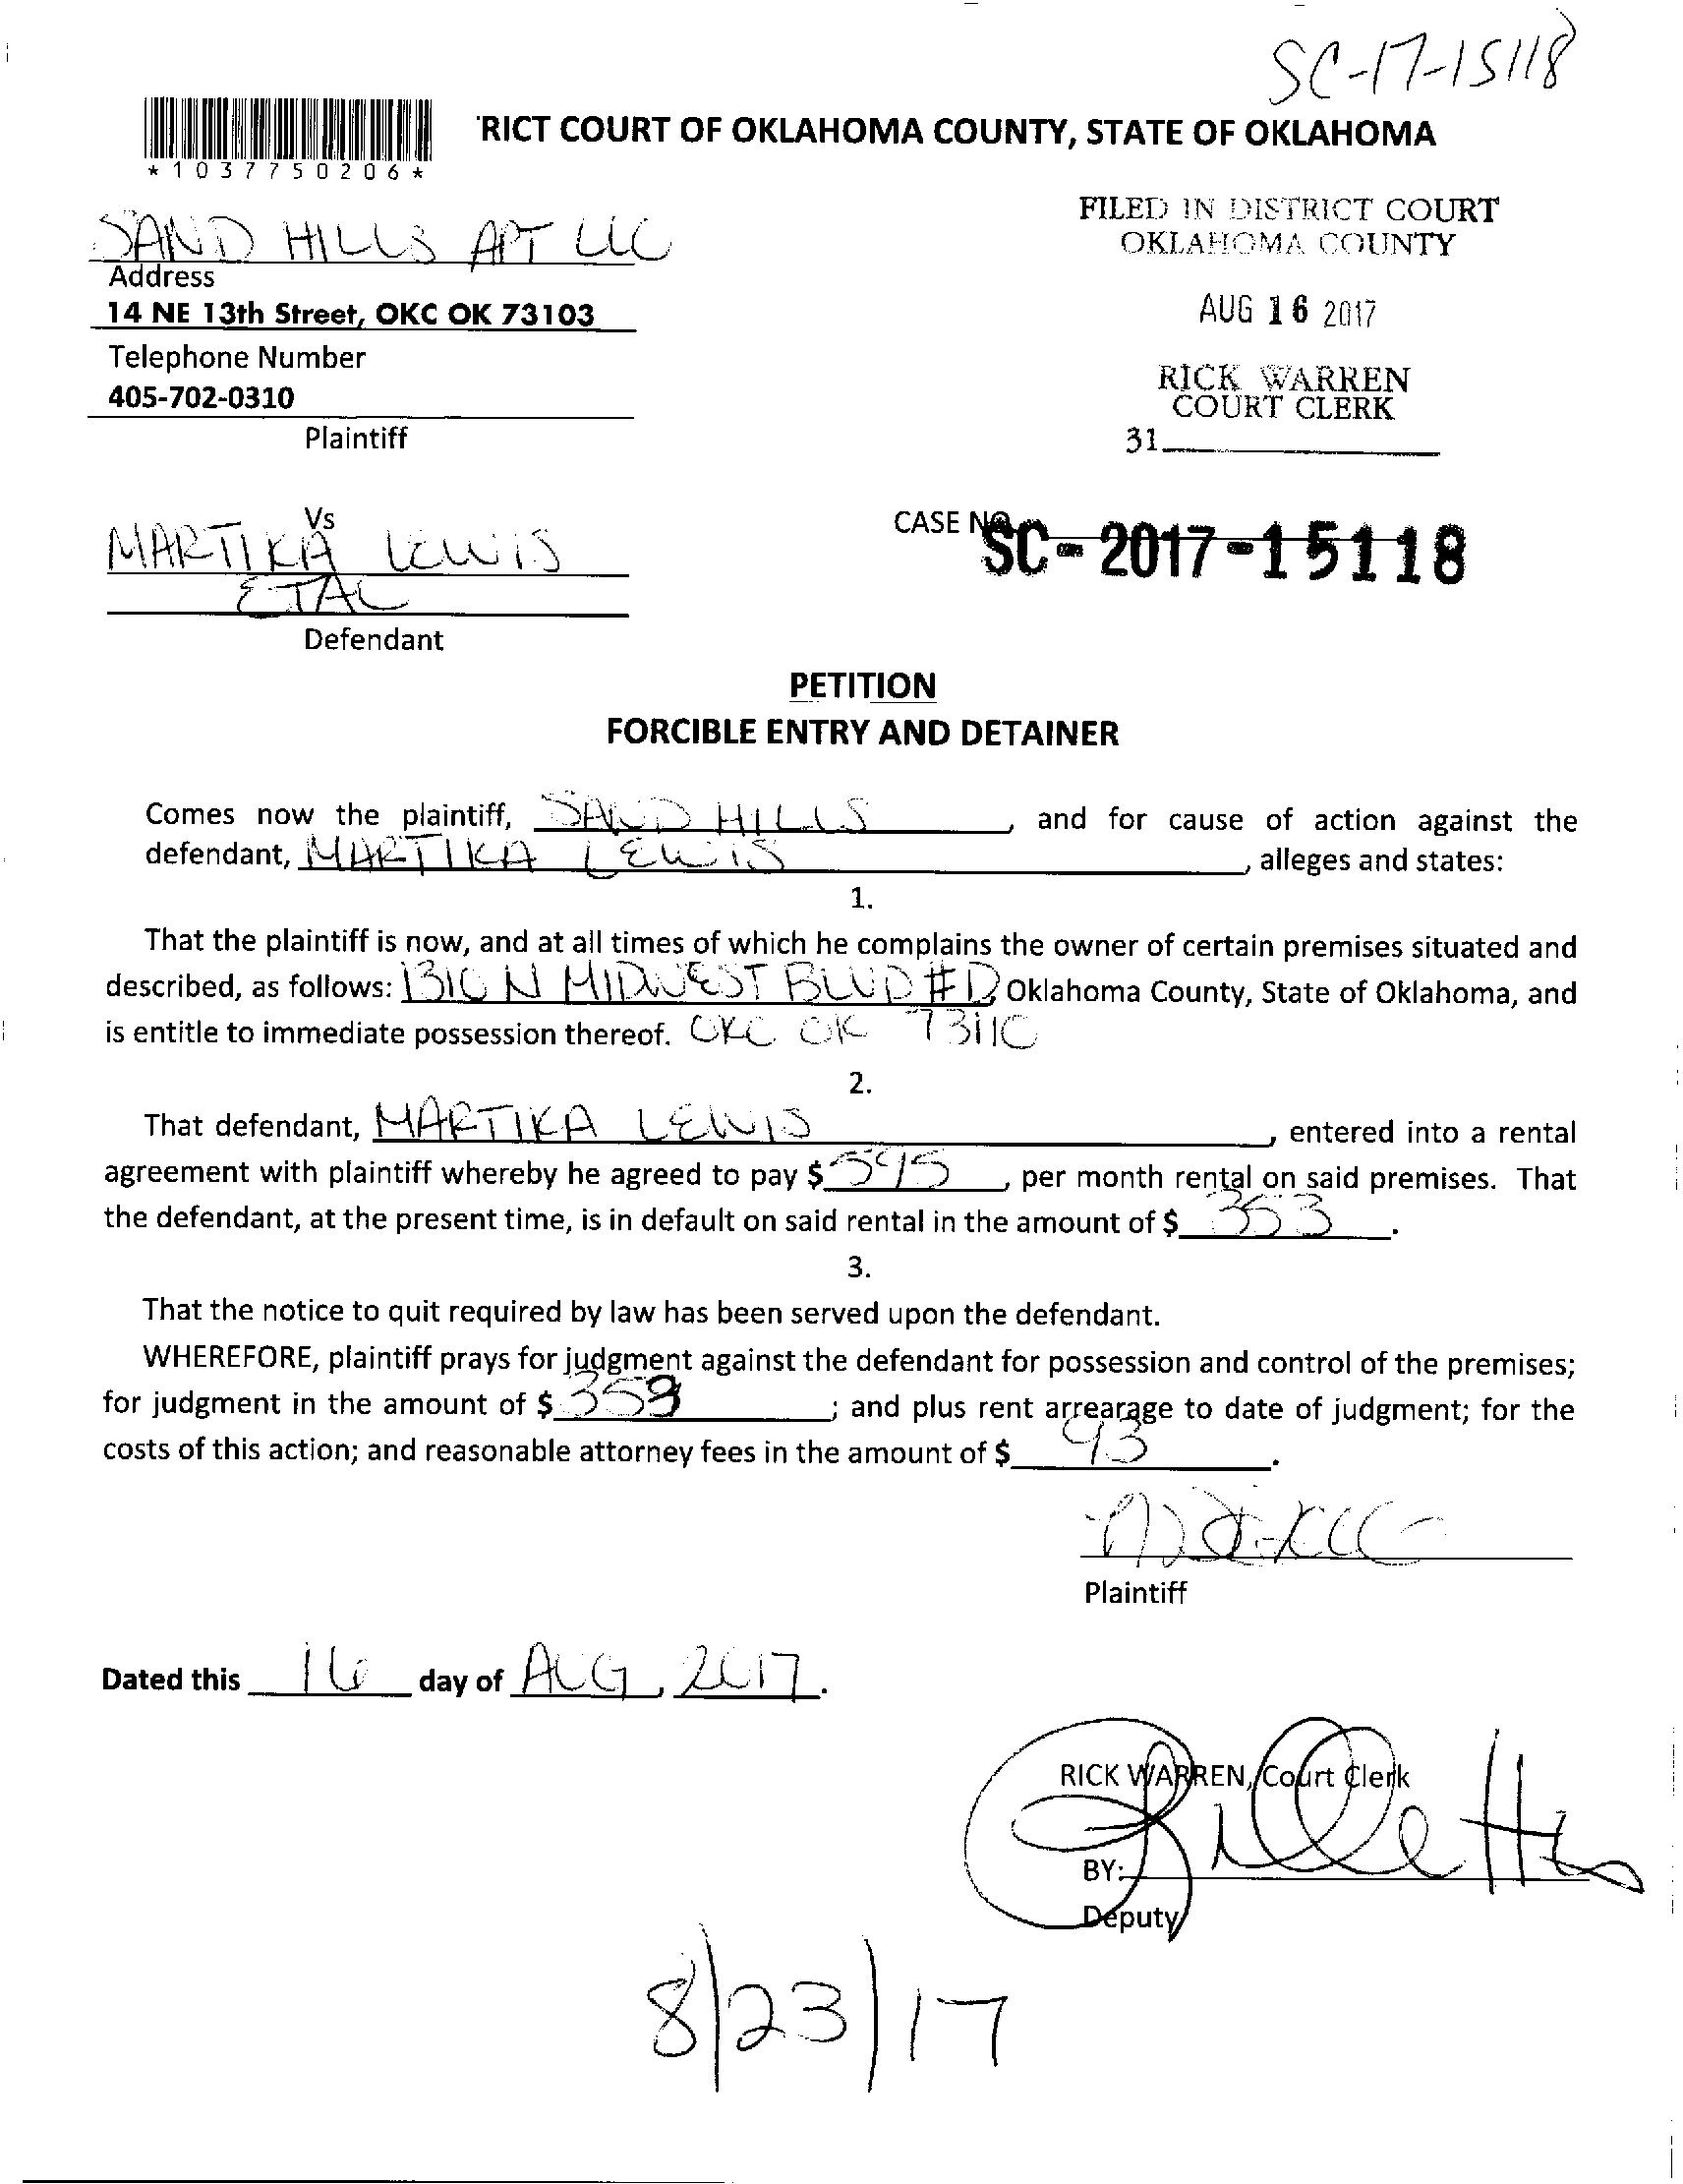 SC-17-15118
'RICT COURT OF OKLAHOMA COUNTY, STATE OF OKLAHOMA
*1037750206*
SAND HILLS APT LLC
Address
14 NE 13th Street, OKC OK 73103
Telephone Number
405-702-0310
Plaintiff
FILED IN DISTRICT COURT
OKLAHOMA COUNTY
AUG 16 2017
RICK WARREN
COURT CLERK
31
Vs
MARTIKA LEWIS
ETAL
Defendant
CASE NO. SC-2017-15118
PETITION
FORCIBLE ENTRY AND DETAINER
Comes now the plaintiff, SAND HILLS, and for cause of action against the
defendant, MARTIKA LEWIS, alleges and states:
1.
That the plaintiff is now, and at all times of which he complains the owner of certain premises situated and
described, as follows: 1310 N MIDWEST BLVD #D, Oklahoma County, State of Oklahoma, and
is entitle to immediate possession thereof. OKC OK 73110
2.
That defendant, MARTIKA LEWIS, entered into a rental
agreement with plaintiff whereby he agreed to pay $ 595, per month rental on said premises. That
the defendant, at the present time, is in default on said rental in the amount of $ 353.
3.
That the notice to quit required by law has been served upon the defendant.
WHEREFORE, plaintiff prays for judgment against the defendant for possession and control of the premises;
for judgment in the amount of $ 353; and plus rent arrearage to date of judgment; for the
costs of this action; and reasonable attorney fees in the amount of $ 93.
Plaintiff
Dated this 16 day of AUG, 2017.
RICK WARREN, Court Clerk
BY:
Deputy
8/23/17